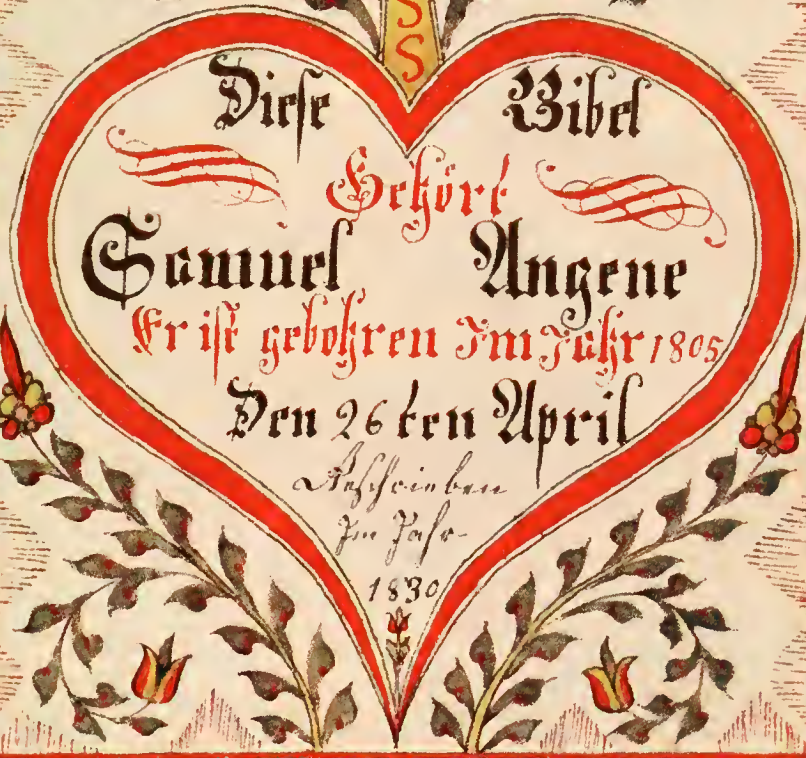 S
S
Diese Bibel
Gehört
Samuel Angene
Er ist gebohren Im Jahr 1805
Den 26ten April
Geschrieben
Im Jahr
1830